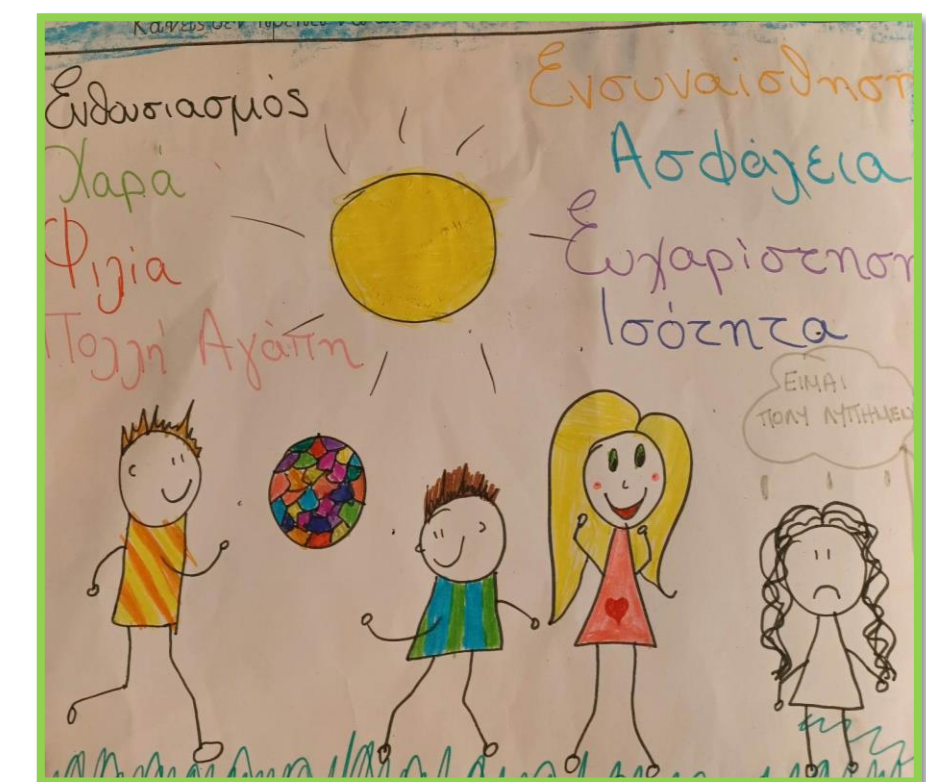 Κανείς δεν πρέπει να
Ενθουσιασμός
Χαρά
Φιλία
Πολλή Αγάπη
Ενσυναίσθηση
Ασφάλεια
Ευχαρίστηση
Ισότητα
ΕΙΜΑΙ
ΠΟΛΥ ΛΥΠΗΜΕΝ